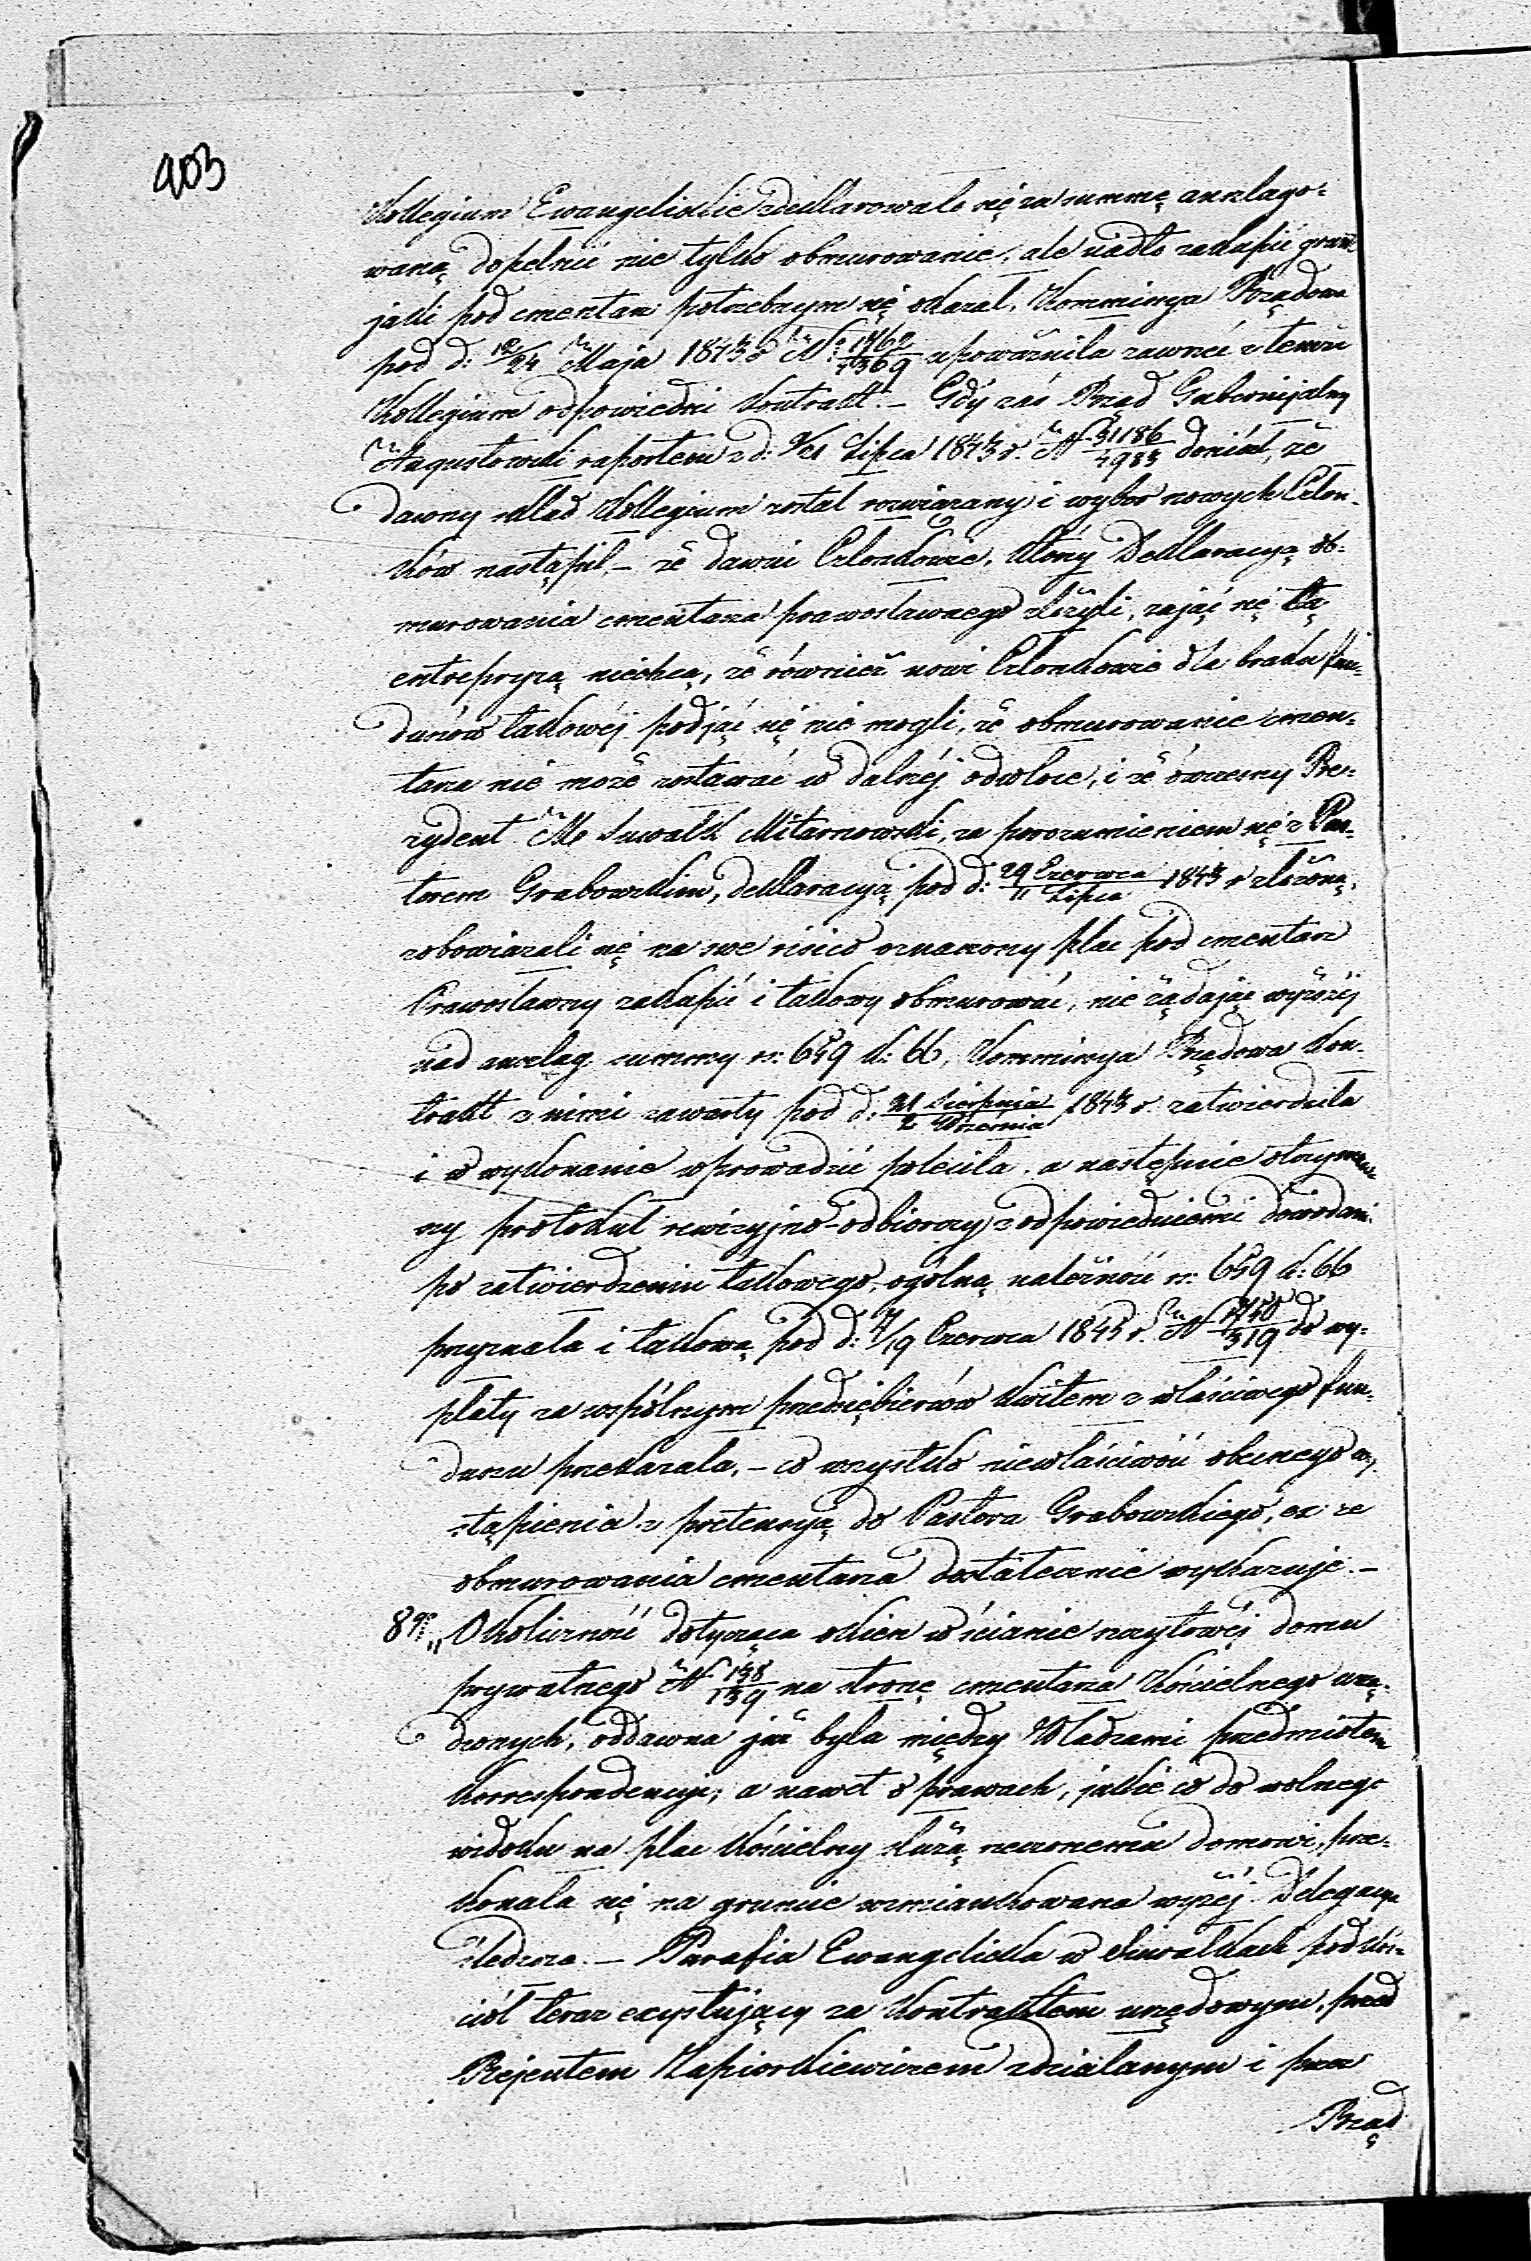 403
Kollegium Ewangelickie zdeklarowało się za summę anszlago-
waną dopełnić nie tylko obmurowanie, ale nadto zakupić grunt
jaki pod cmentarz potrzebnym się okazał, Kommissya Rządowa
pod d: 12/24 Maja 1843 r N 1462/7369 upoważniła zawrzeć z temże
Kollegium odpowiedni kontrakt. – Gdy zaś Rząd Gubernijalny
Augustowski raportem z d: 9/21 Lipca 1843 r. N 31186/4983 doniósł, że
dawny skład Kollegium został rozwiązany i wybór nowych Człon-
ków nastąpił, – że dawni Członkowie, którzy Deklaracyą ob-
murowania cmentarza prawosławnego złożyli, zająć się tą
entrepryzą niechcą, że również nowi Członkowie dla braku fun-
duszów takowéj podjąć się nie mogli, że obmurowanie cmen-
tarza nie może zostawać w dalszéj odwłoce, i że ówczesny Pre-
zydent Mta Suwałk Mitarnowski, za porozumieniem się z Pas-
torem Grabowskim, deklaracyą pod d: 29 Czerwca/11 Lipca 1843 r złożoną,
zobowiązali się na swe risico oznaczony plac pod cmentarz
Prawosławny zakupić i takowy obmurować, nie żądając wyżéj
nad anszlag summy rs: 659 k: 66, Kommissya Rządowa kon-
trakt z nimi zawarty pod d: 21 Sierpnia/2 Września 1843 r. zatwierdziła
i w wykonanie wprowadzić poleciła, a następnie otrzymaw-
szy protokuł rewizyjno-odbiorczy z odpowiedniemi dowodami
po zatwierdzeniu takowego, ogólną należność rs: 659 k: 66
przyznała i takową pod d: 7/19 Czerwca 1845 r. N 1740/319 do wy-
płaty za wspólnym przedsiębierców kwitem z właściwego fun-
duszu przekazała, – co wszystko niewłaściwość obecnego wy-
stąpienia z pretensyą do Pastora Grabowskiego, co ze
obmurowania cmentarza dostatecznie wykazuje. –
8o „ Okoliczność dotycząca okien w ścianie szczytowéj domu
prywatnego N 138/139 na stronę cmentarza Kościelnego urzą-
dzonych, oddawna już była między Władzami przedmiotem
korrespondencyi; a nawet o prawach, jakie co do wolnego
widoku na plac Kościelny służą rzeczonemu domowi, prze-
konała się na gruncie wzmiankowana wyżéj Delegacya
śledcza. – Parafia Ewangelicka w Suwałkach pod koś-
ciół teraz exystujący za kontraktem urzędowym, przed
Rejentem Zapiorkiewiczem zdziałanym i przez
Rząd